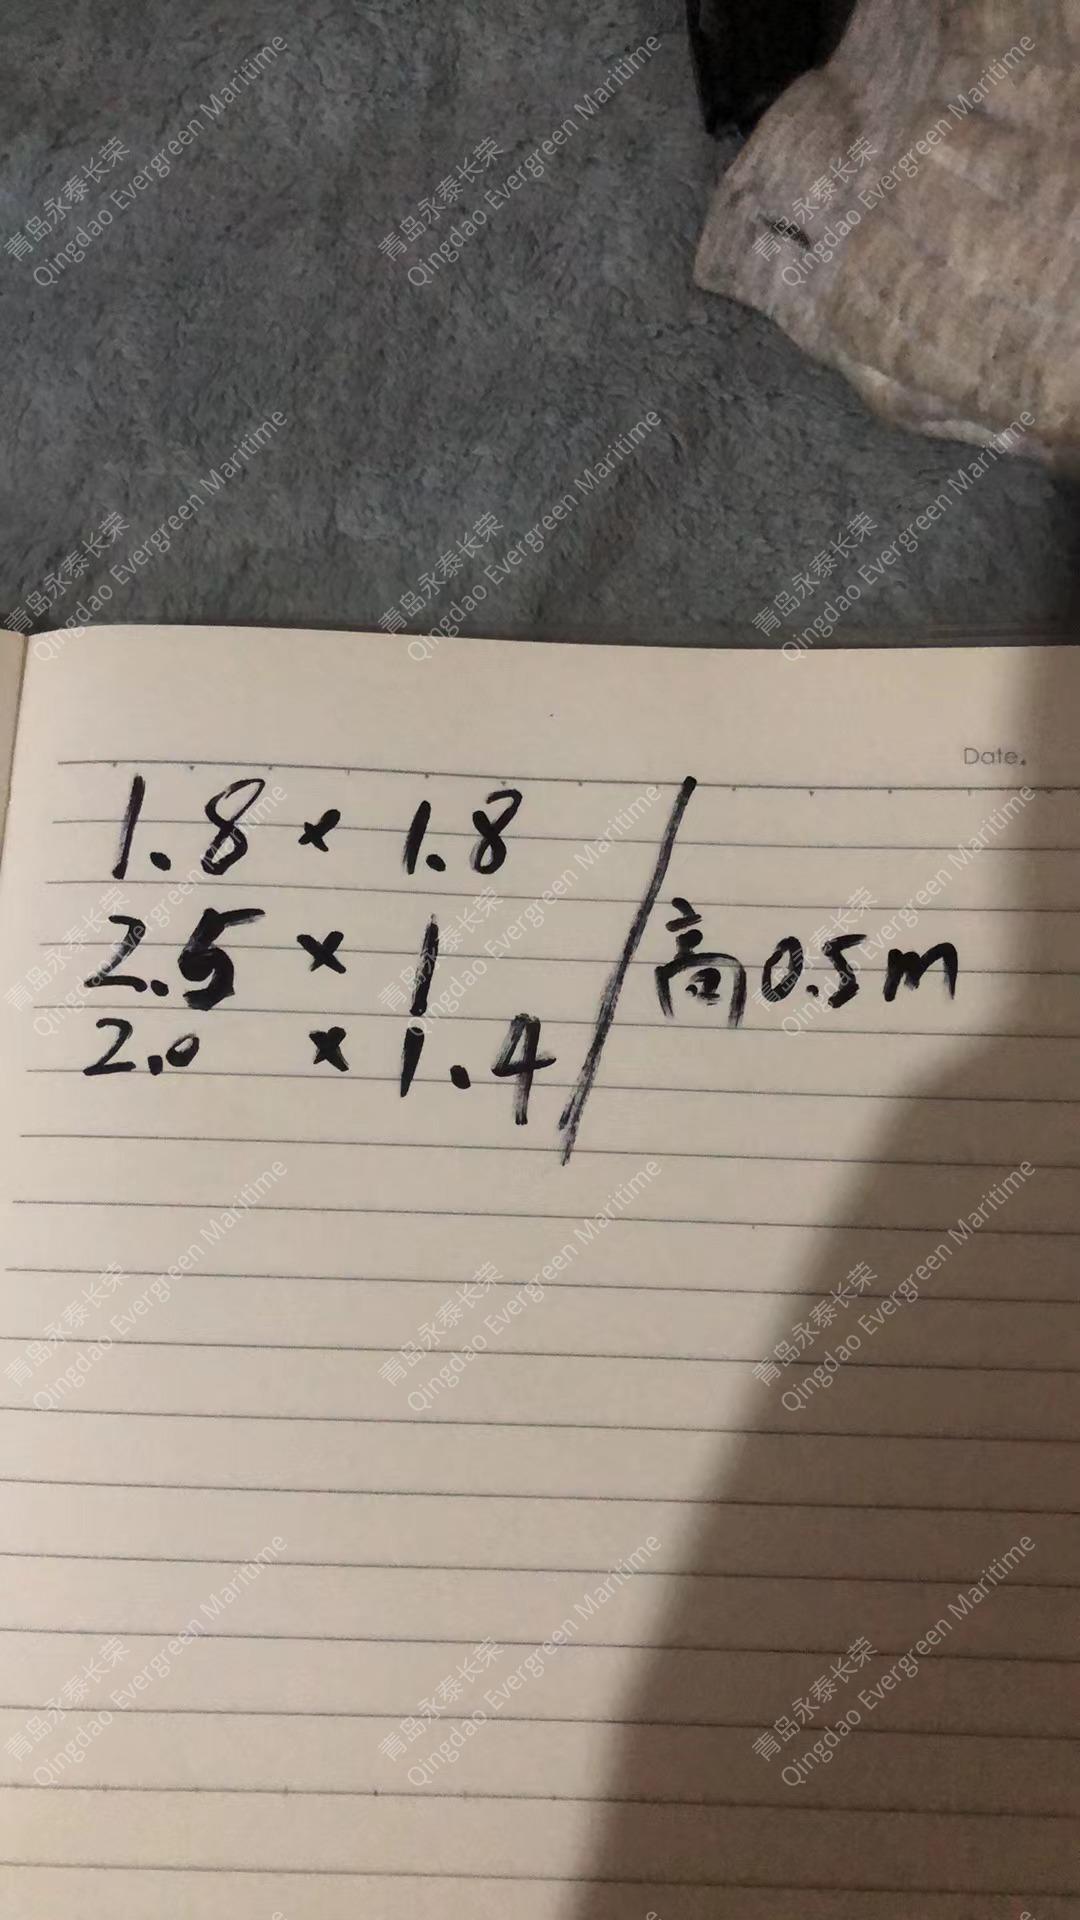 Date.
1.8 × 1.8
2.5 × 1
2.0 × 1.4
高0.5m
青岛永泰长荣
Qingdao Evergreen Maritime